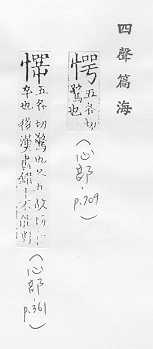 四聲篇海
愕 五各切
驚也
(心部.p.709)
五各切驚也又五故切
卒也後漢書錯不能對
(心部.p.361)